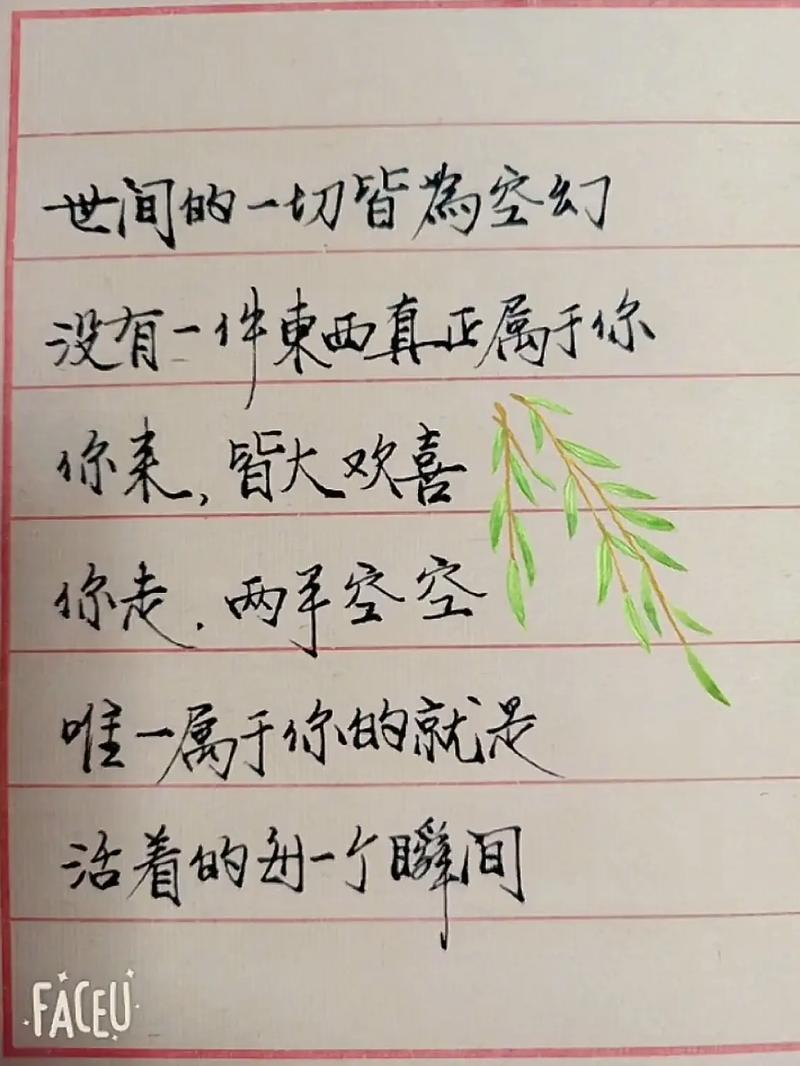 世间的一切皆為空幻
没有一件東西真正属于你
你来,皆大欢喜
你走.两手空空
唯一属于你的就是
活着的每一个瞬间
FACEU